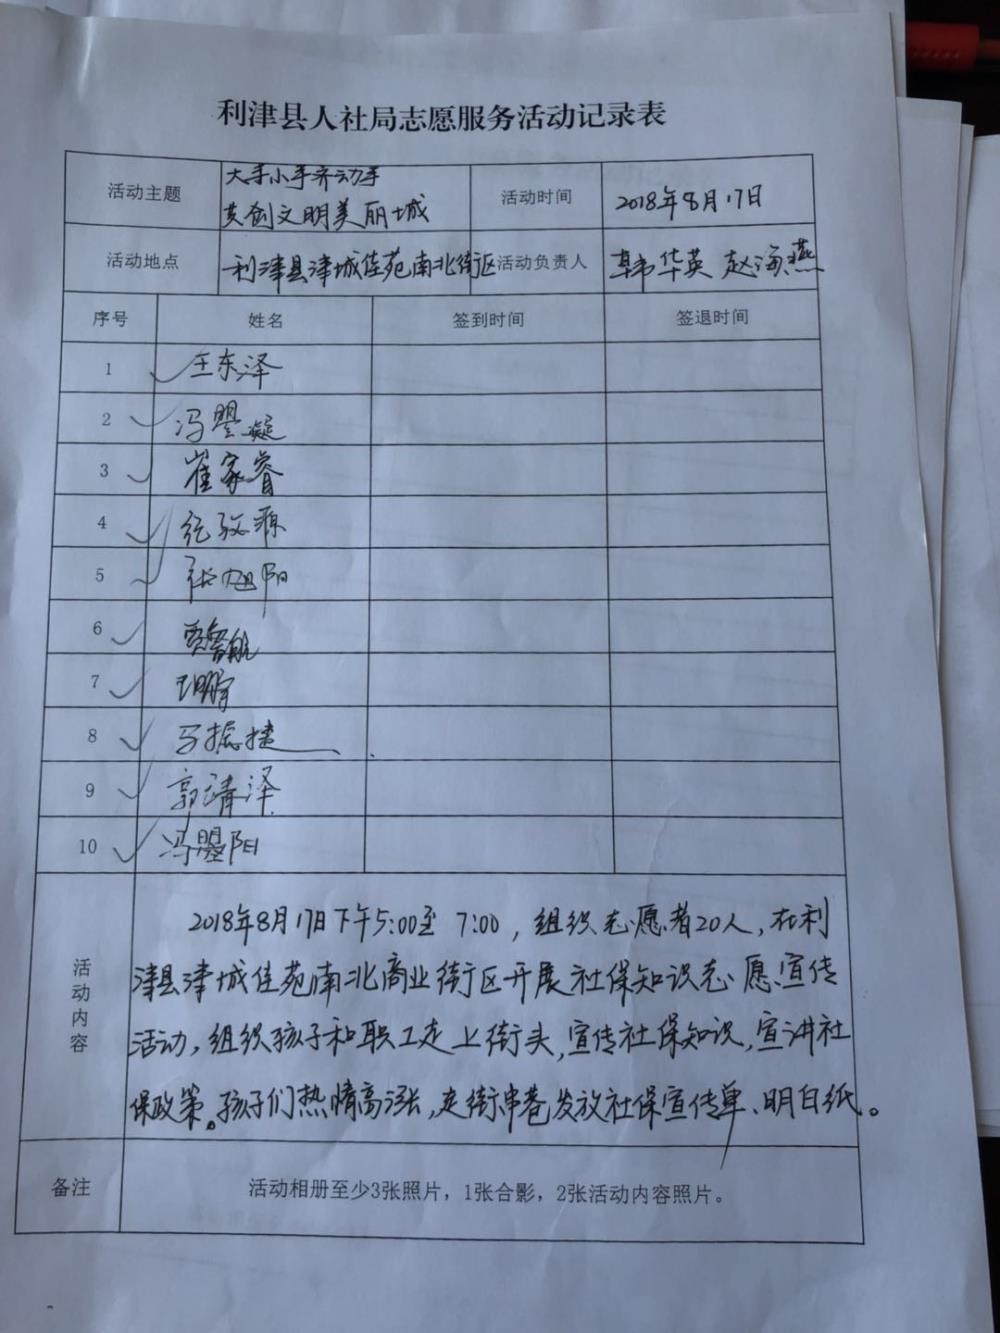 利津县人社局志愿服务活动记录表
活动主题 大手小手齐动手 共创文明美丽城 活动时间 2018年8月17日
活动地点 利津县津城佳苑南北街区 活动负责人 韩华英 赵海燕
序号 姓名 签到时间 签退时间
1 王东泽
2 冯曌凝
3 崔家睿
4 纪孜源
5 张旭阳
6 贾智航
7
8 马振捷
9 郭靖泽
10 冯曌阳
活动内容
2018年8月17日下午5:00至7:00，组织志愿者20人，在利
津县津城佳苑南北商业街区开展社保知识志愿宣传
活动，组织孩子和职工走上街头，宣传社保知识，宣讲社
保政策。孩子们热情高涨，走街串巷发放社保宣传单、明白纸。
备注 活动相册至少3张照片，1张合影，2张活动内容照片。